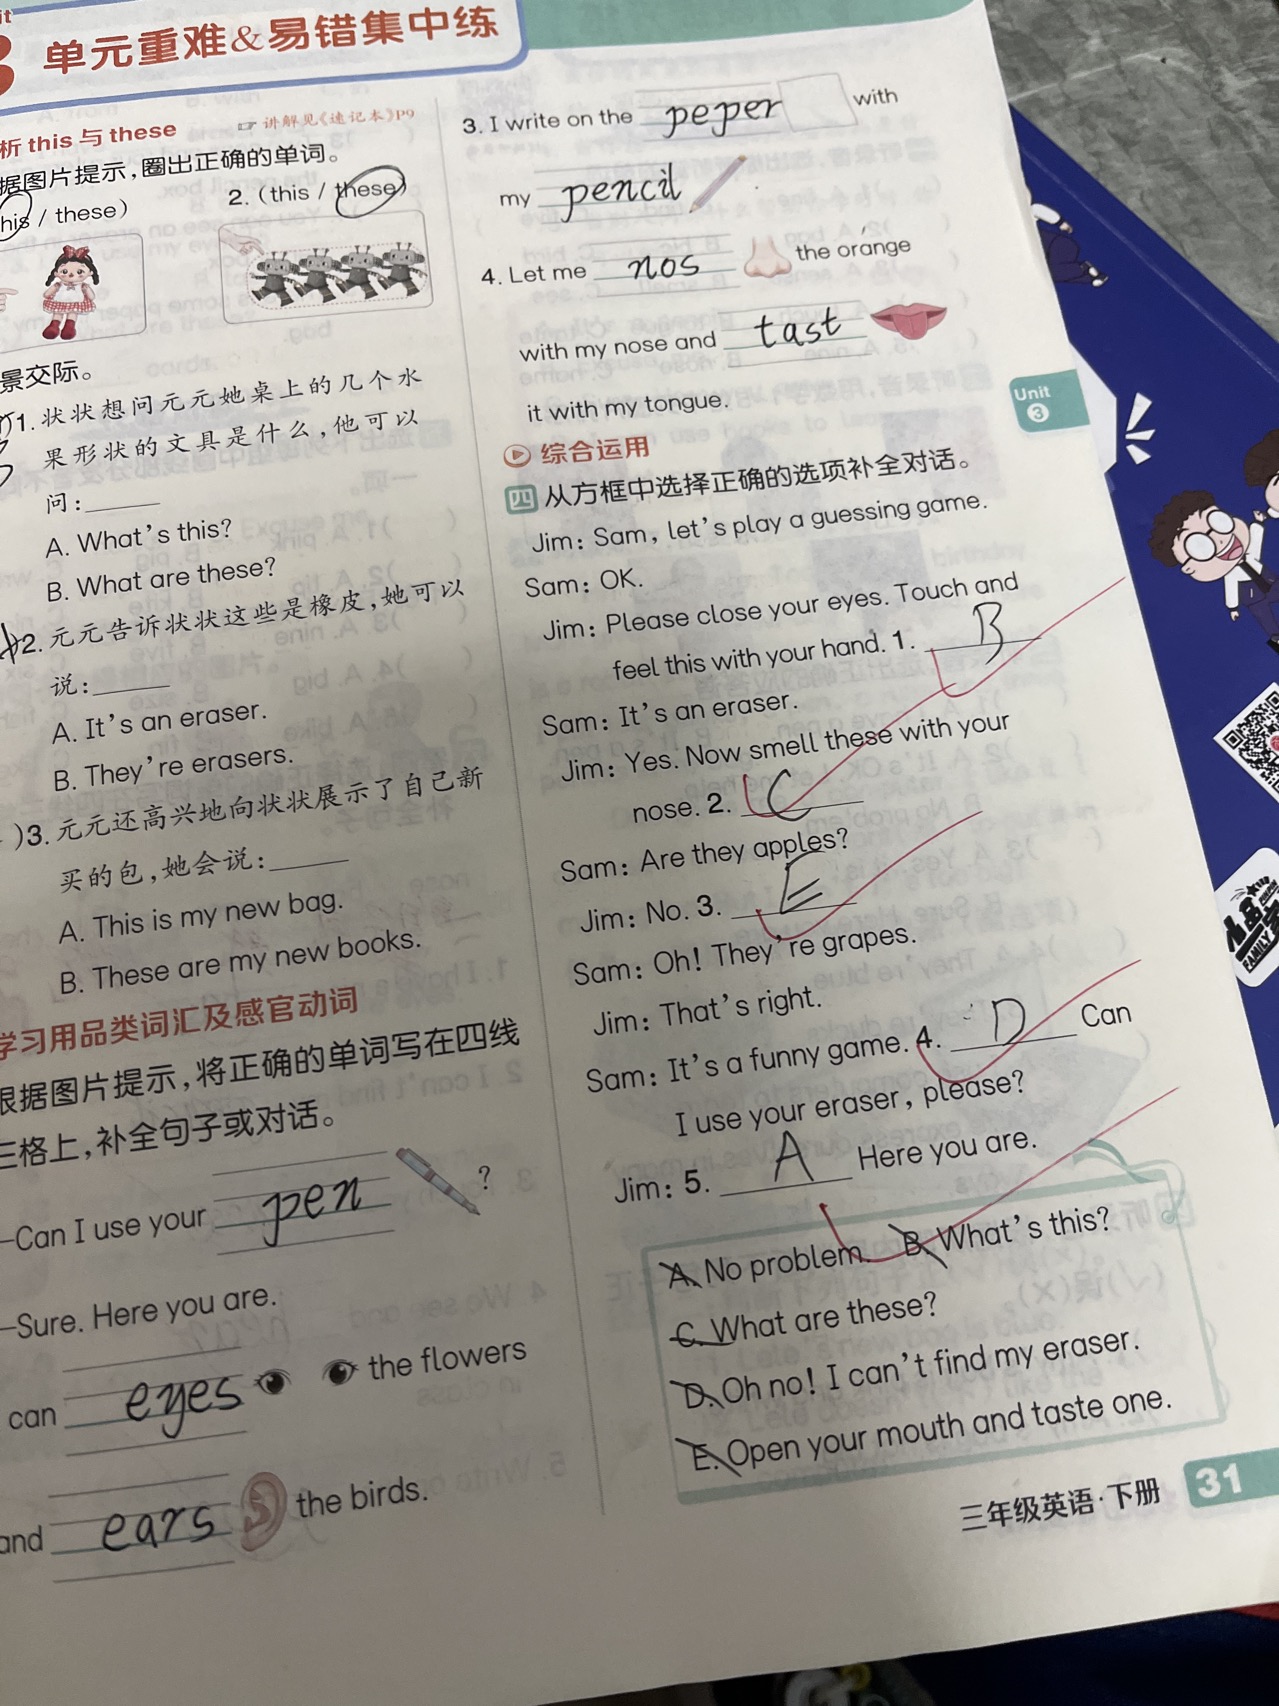 单元重难&易错集中练
析 this 与 these
讲解见《速记本》P9
据图片提示,圈出正确的单词。
his / these)
2. (this / these)
景交际。
1. 状状想问元元她桌上的几个水
果形状的文具是什么,他可以
问:
A. What's this?
B. What are these?
2. 元元告诉状状这些是橡皮,她可以
说:
A. It's an eraser.
B. They're erasers.
)3. 元元还高兴地向状状展示了自己新
买的包,她会说:
A. This is my new bag.
B. These are my new books.
学习用品类词汇及感官动词
根据图片提示,将正确的单词写在四线
三格上,补全句子或对话。
—Can I use your pen ?
—Sure. Here you are.
can eyes the flowers
and ears the birds.
3. I write on the peper with
my pencil
4. Let me nos the orange
with my nose and tast
it with my tongue.
综合运用
四 从方框中选择正确的选项补全对话。
Jim: Sam, let's play a guessing game.
Sam: OK.
Jim: Please close your eyes. Touch and
feel this with your hand. 1. B
Sam: It's an eraser.
Jim: Yes. Now smell these with your
nose. 2. C
Sam: Are they apples?
Jim: No. 3. E
Sam: Oh! They're grapes.
Jim: That's right.
Sam: It's a funny game. 4. D Can
I use your eraser, please?
Jim: 5. A Here you are.
A. No problem. B. What's this?
C. What are these?
D. Oh no! I can't find my eraser.
E. Open your mouth and taste one.
三年级英语·下册 31
Unit
3
FAMILY